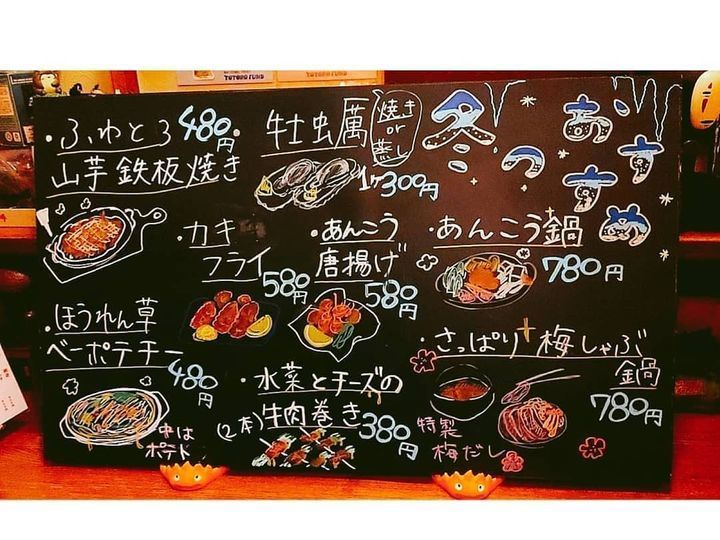 TOTORO FUND
・ふわとろ
山芋鉄板焼き
480円
・牡蠣
焼き
or
蒸し
1ヶ300円
冬の
おすすめ
・カキ
フライ
580円
・あんこう
唐揚げ
580円
・あんこう鍋
780円
・ほうれん草
ベーポテチー
480円
中は
ポテト
・水菜とチーズの
牛肉巻き
(2本)
380円
・さっぱり梅しゃぶ
鍋
780円
特製
梅だし